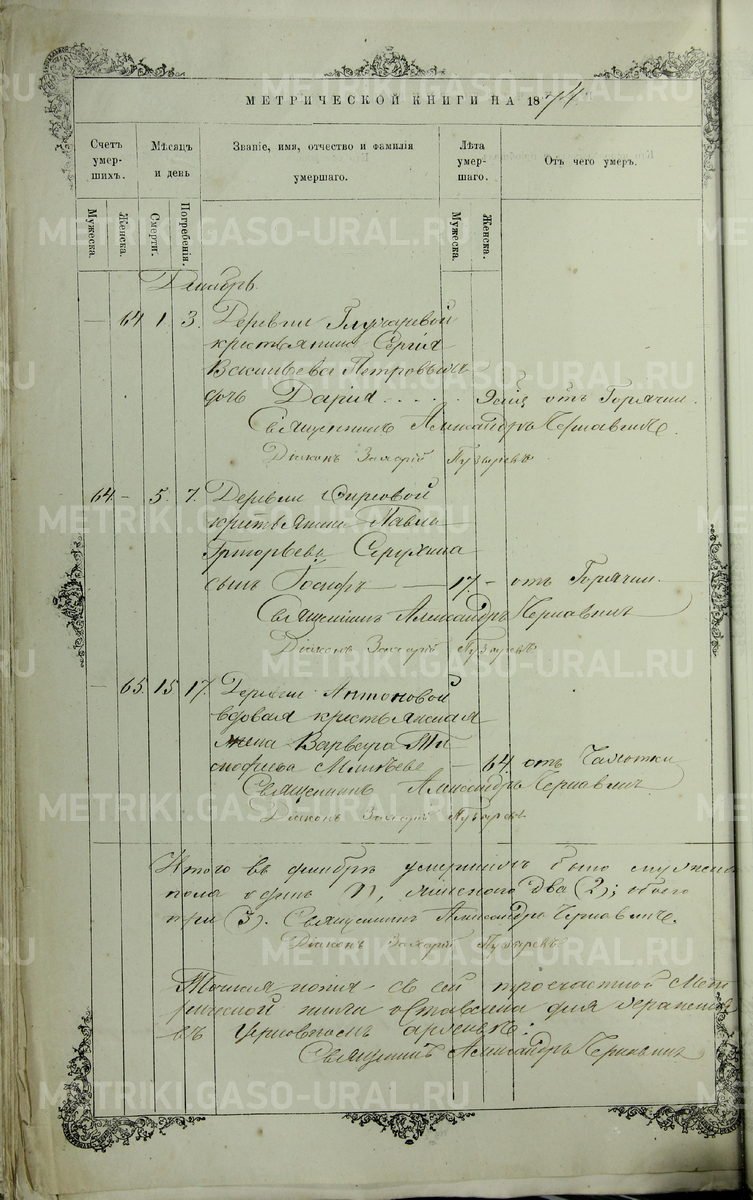 МЕТРИЧЕСКОЙ КНИГИ НА 1874
Счетъ умер-шихъ.
Мѣсяцъ и день
Званіе, имя, отчество и фамилія умершаго.
Лѣта умер-шаго.
Отъ чего умеръ.
Мужеска.
Женска.
Смерти.
Погребенія.
Мужеска.
Женска.
Декабрь.
— 64 1 3. Деревни
крестьянина Сергія
Васильева Петровыхъ
дочь Дарія отъ Горячки.
Священникъ Александръ Чернавинъ.
Діаконъ Захарій Пузыревъ
64 — 5. 7. Деревни
крестьянина Павла
Григорьева
сынъ Іосифъ — 17. — отъ Горячки.
Священникъ Александръ Чернавинъ
Діаконъ Захарій Пузыревъ
— 65. 15 17. Деревни Антоновой
вдовая крестьянская
жена Варвара Ти
мофеева — 64. отъ Чахотки
Священникъ Александръ Чернавинъ
Діаконъ Захарій Пузыревъ
Итого въ декабрѣ умершихъ было мужеска
пола одинъ (1), женскаго два (2); обоего
три (3). Священникъ Александръ Чернавинъ.
Діаконъ Захарій Пузыревъ
Точная копія съ сей Мет
рической книги оставлена для храненія
въ церковномъ архивѣ:
Священникъ Александръ Чернавинъ
METRIKI.GASO-URAL.RU